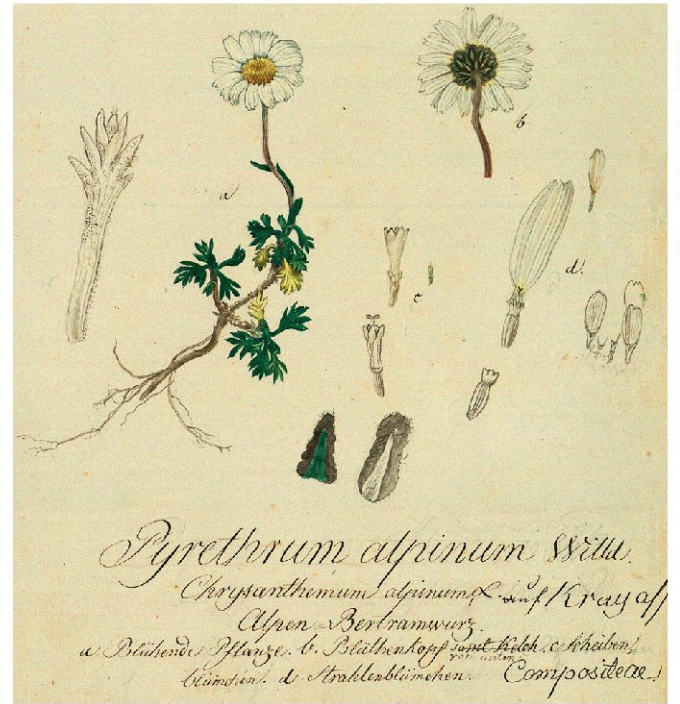 a
b
c
d.
Pyrethrum alpinum Willd.
Chrysanthemum alpinum L. auf Kray alp
Alpen-Bertramwurz.
a Blühende Pflanze. b. Blüthenkopf samt Kelch. c Scheiben
von unten
blümchen. d. Strahlenblümchen. Compositeae.